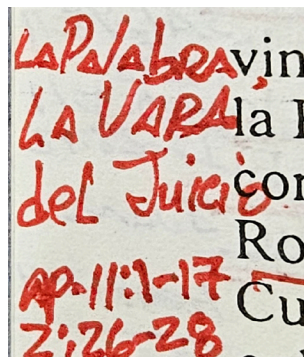 LA PALABRA
LA VARA
del Juicio
ap. 11:1-17
2:26-28
vin
la
con
Ro
Cu